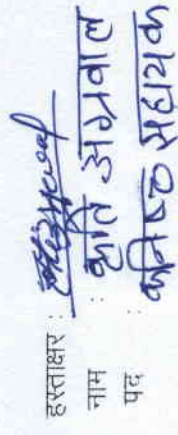 हस्ताक्षर :
नाम : कृति अग्रवाल
पद : कनिष्ठ सहायक